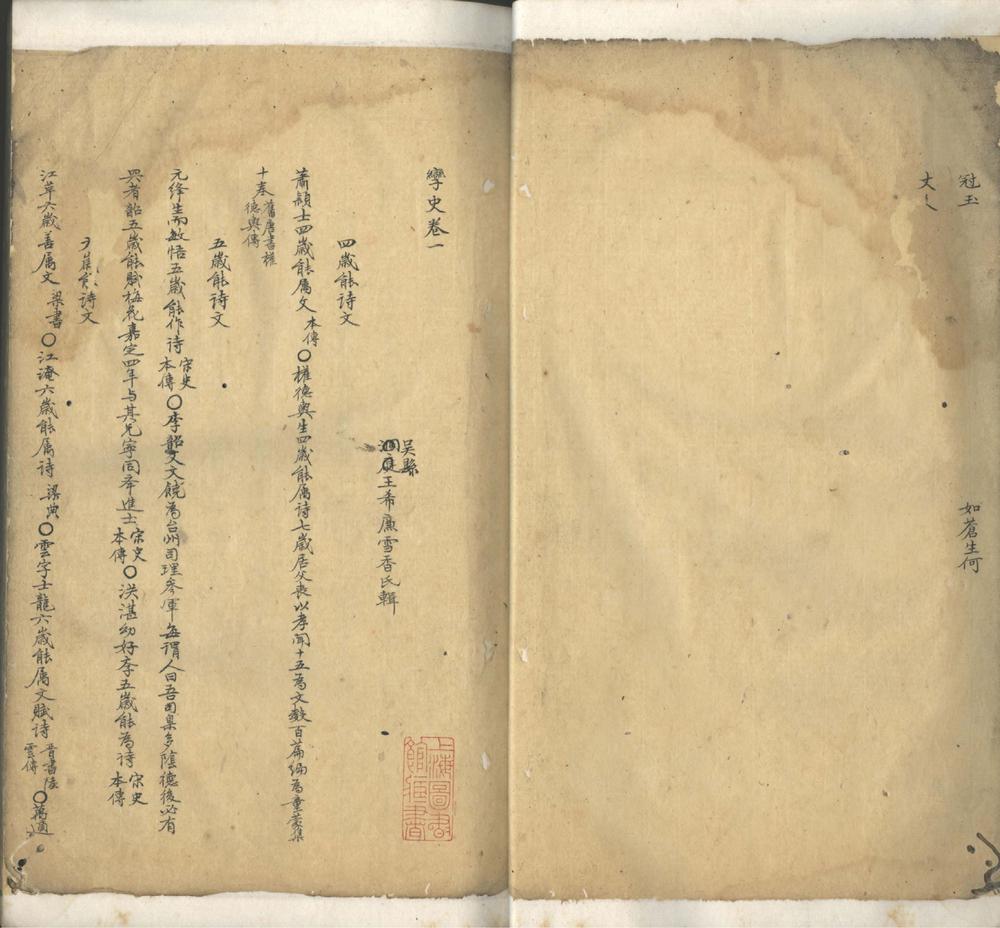 冠玉
如蒼生何
丈人
孿史卷一
吳縣
洞庭王希廉雪香氏輯
四歲能詩文
蕭穎士四歲能屬文本傳〇權德輿生四歲能屬詩七歲居父喪以孝聞十五為文數百篇編為童蒙集
十卷舊唐書權德輿傳
五歲能詩文
元絳生而敏悟五歲能作詩宋史本傳〇李韶父文饒為台州司理參軍每謂人曰吾司臬多陰德後必有
興者韶五歲能賦梅花嘉定四年与其兄寧同舉進士宋史本傳〇洪湛幼好孝五歲能為詩宋史本傳
六歲能詩文
江革六歲善属文梁書〇江淹六歲能属詩梁典〇雲字士龍六歲能属文賦詩晉書陸雲傳〇萬適
上海圖書館藏書